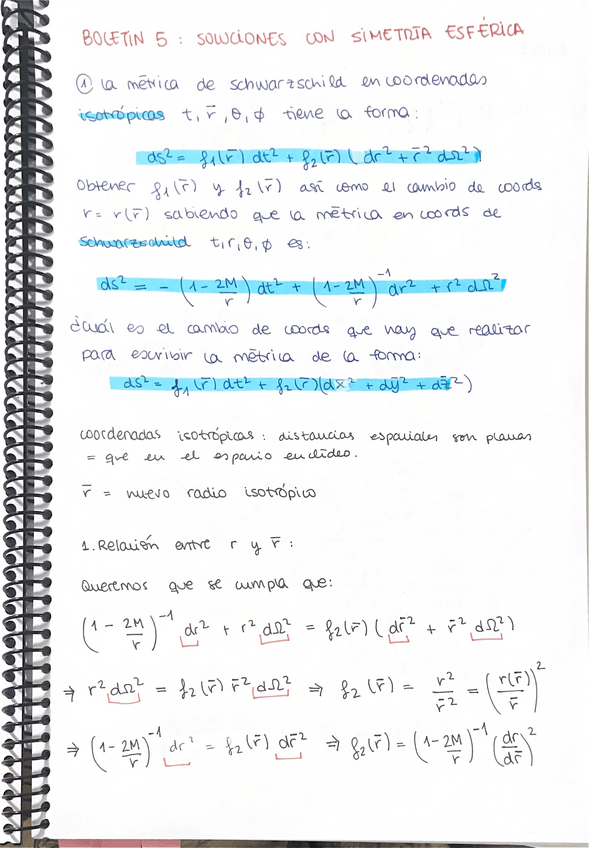 BOLETIN 5 : SOLUCIONES CON SIMETRÍA ESFÉRICA
① La métrica de schwarzschild en coordenadas
isotrópicas t, r̄, θ, ϕ tiene la forma:
ds² = f₁(r̄) dt² + f₂(r̄) ( dr̄² + r̄² dΩ²)
Obtener f₁(r̄) y f₂(r̄) así como el cambio de coords
r = r(r̄) sabiendo que la métrica en coords de
Schwarzschild t, r, θ, ϕ es:
ds² = - (1 - 2M/r) dt² + (1 - 2M/r)⁻¹ dr² + r² dΩ²
¿cuál es el cambio de coords que hay que realizar
para escribir la métrica de la forma:
ds² = f₁(r̄) dt² + f₂(r̄)(dx̄² + dȳ² + dz̄²)
coordenadas isotrópicas : distancias espaciales son planas
= que en el espacio euclídeo.
r̄ = nuevo radio isotrópico
1. Relación entre r y r̄ :
Queremos que se cumpla que:
(1 - 2M/r)⁻¹ dr² + r² dΩ² = f₂(r̄) ( dr̄² + r̄² dΩ²)
⇒ r² dΩ² = f₂(r̄) r̄² dΩ² ⇒ f₂(r̄) = r²/r̄² = (r(r̄)/r̄)²
⇒ (1 - 2M/r)⁻¹ dr² = f₂(r̄) dr̄² ⇒ f₂(r̄) = (1 - 2M/r)⁻¹ (dr/dr̄)²